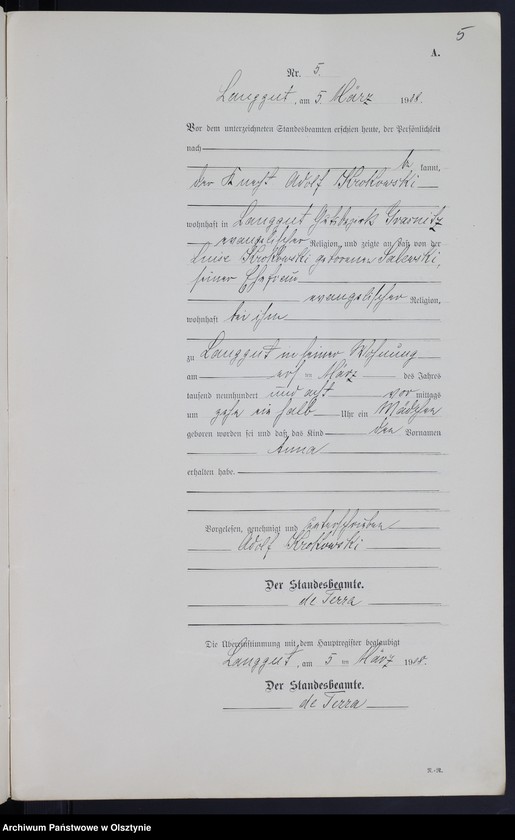 5
A.
Nr. 5.
Langgut, am 5. März 1908.
Vor dem unterzeichneten Standesbeamten erschien heute, der Persönlichkeit
nach
be kannt,
der Knecht Adolf Krokowski
wohnhaft in Langgut Gutsbezirk
evangelischer Religion, und zeigte an, daß von der
Luise Krokowski geborenen Salewski,
seiner Ehefrau
evangelischer Religion,
wohnhaft bei ihm
zu Langgut in seiner Wohnung
am März des Jahres
tausend neunhundert und acht vor mittags
um ein halb Uhr ein Mädchen
geboren worden sei und daß das Kind den Vornamen
Anna
erhalten habe.
Vorgelesen, genehmigt und unterschrieben
Adolf Krokowski
Der Standesbeamte.
de Terra
Die Übereinstimmung mit dem Hauptregister beglaubigt
Langgut, am 5 ten März 1908.
Der Standesbeamte.
de Terra
R.-R.
Archiwum Państwowe w Olsztynie